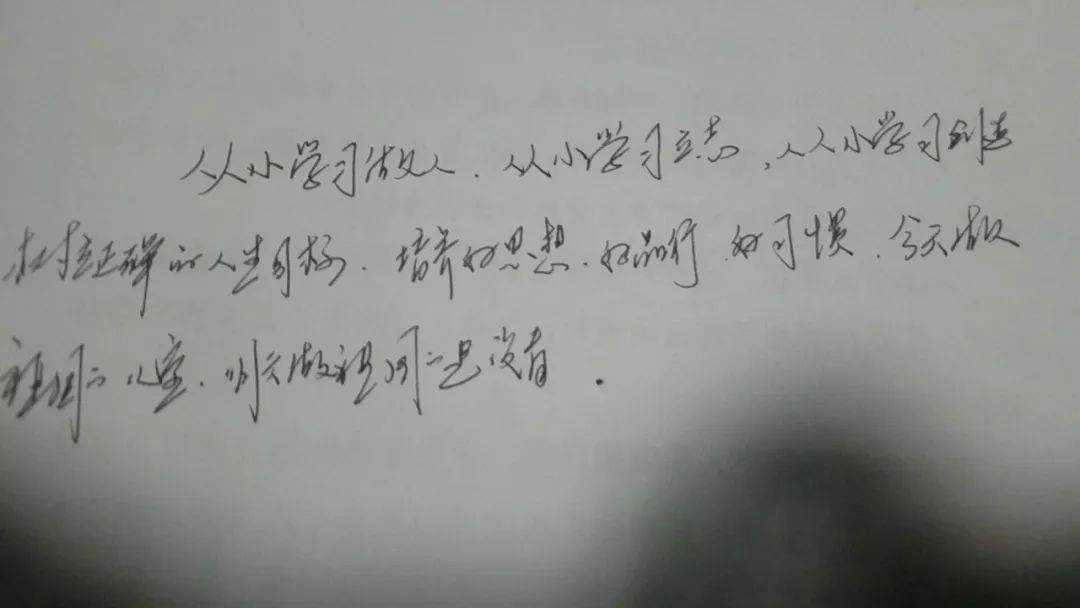 从小学习做人、从小学习立志、从小学习创造
树立正确的人生目标、培养好思想、好品行、好习惯、今天做
祖国的儿童、明天做祖国的建设者.